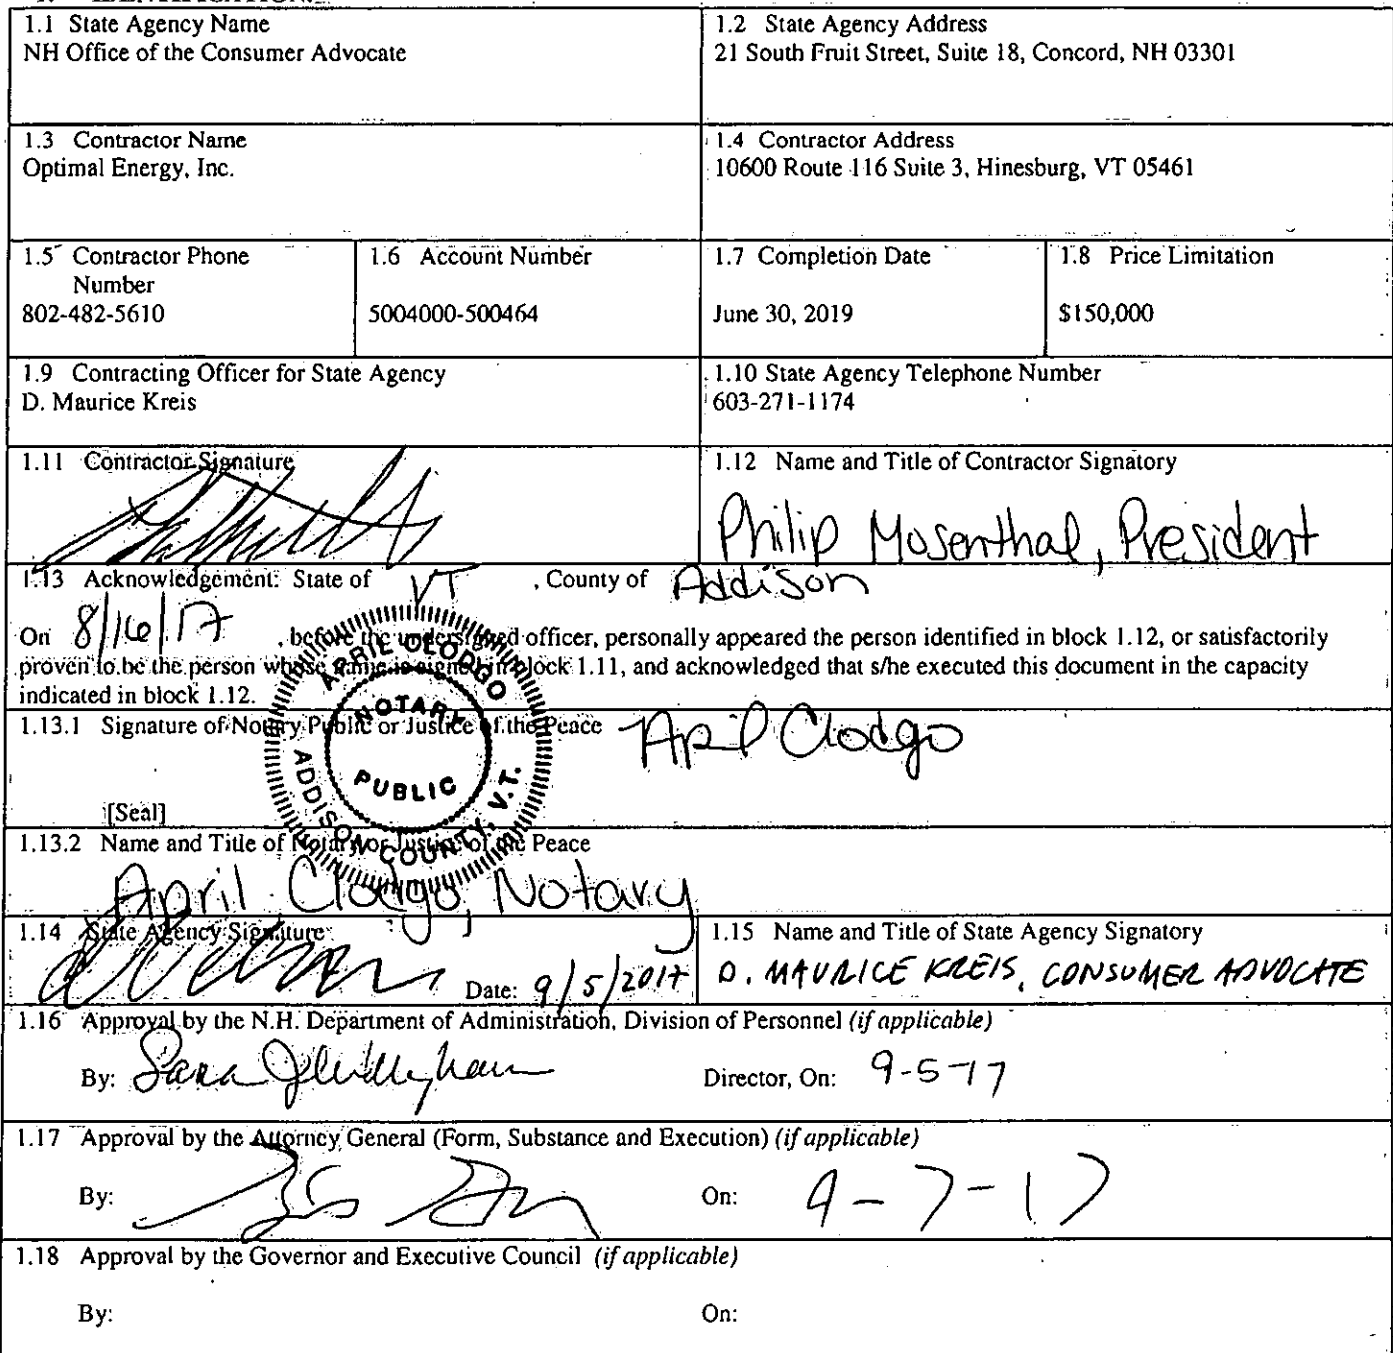 1.1 State Agency Name
NH Office of the Consumer Advocate
1.2 State Agency Address
21 South Fruit Street, Suite 18, Concord, NH 03301
1.3 Contractor Name
Optimal Energy, Inc.
1.4 Contractor Address
10600 Route 116 Suite 3, Hinesburg, VT 05461
1.5 Contractor Phone
Number
802-482-5610
1.6 Account Number
5004000-500464
1.7 Completion Date
June 30, 2019
1.8 Price Limitation
$150,000
1.9 Contracting Officer for State Agency
D. Maurice Kreis
1.10 State Agency Telephone Number
603-271-1174
1.11 Contractor Signature
1.12 Name and Title of Contractor Signatory
Philip Mosenthal, President
1.13 Acknowledgement: State of VT , County of Addison
On 8/16/17 , before the undersigned officer, personally appeared the person identified in block 1.12, or satisfactorily
proven to be the person whose name is signed in block 1.11, and acknowledged that s/he executed this document in the capacity
indicated in block 1.12.
1.13.1 Signature of Notary Public or Justice of the Peace
April Clodgo
NOTARY
PUBLIC
ADDISON COUNTY, V.T.
[Seal]
1.13.2 Name and Title of Notary or Justice of the Peace
April Clodgo, Notary
1.14 State Agency Signature
Date: 9/5/2017
1.15 Name and Title of State Agency Signatory
D. MAURICE KREIS, CONSUMER ADVOCATE
1.16 Approval by the N.H. Department of Administration, Division of Personnel (if applicable)
By:
Director, On: 9-5-17
1.17 Approval by the Attorney General (Form, Substance and Execution) (if applicable)
By:
On: 9-7-17
1.18 Approval by the Governor and Executive Council (if applicable)
By:
On: